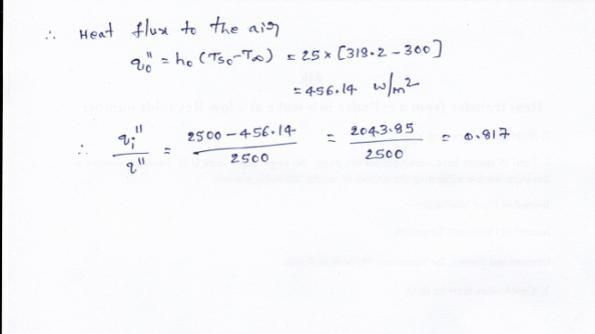 ∴ Heat flux to the air
q₀" = h₀ (Ts₀-T∞) = 25 × [318.2 - 300]
= 456.14 W/m²
∴ qᵢ"/q" = 2500 - 456.14/2500 = 2043.85/2500 = 0.817